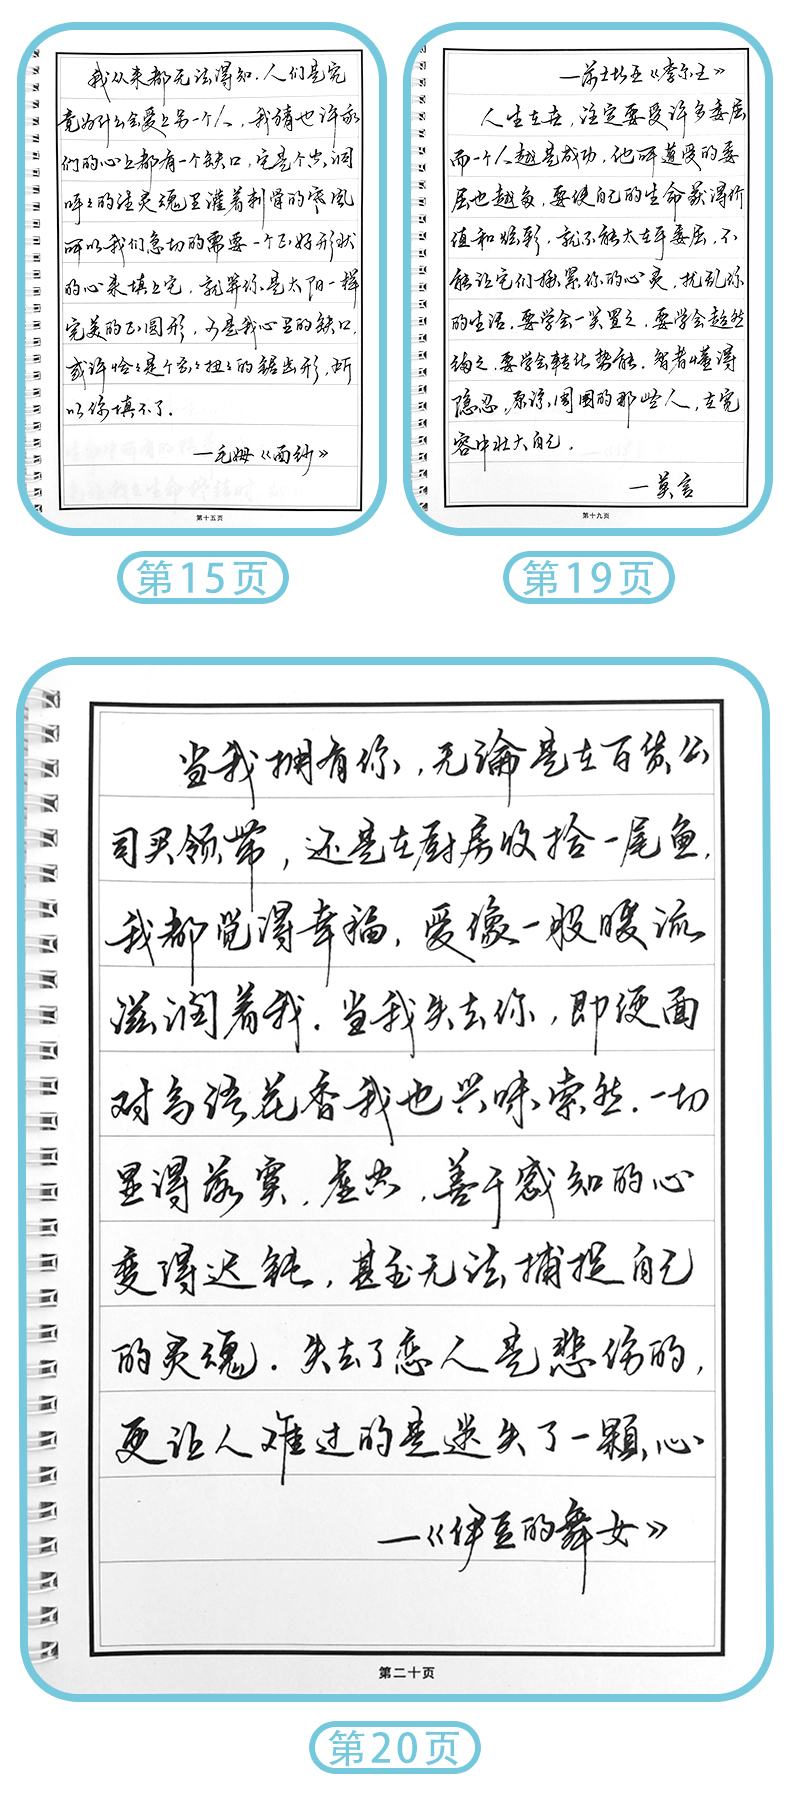 我从来都无法得知，人们是究
竟为什么会爱上另一个人，我猜也许我
们的心上都有一个缺口，它是个空洞
呼呼的往灵魂里灌着刺骨的寒风
所以我们急切的需要一个正好形状
的心来填上它，就算你是太阳一样
完美的正圆形，可是我心里的缺口，
或许恰恰是个歪歪扭扭的锯齿形，所
以你填不了。
—毛姆《面纱》
第十五页
第15页
—莎士比亚《李尔王》
人生在世，注定要受许多委屈
而一个人越是成功，他所遭受的委
屈也越多，要使自己的生命获得价
值和炫彩，就不能太在乎委屈，不
能让它们揪紧你的心灵，扰乱你
的生活，要学会一笑置之，要学会超然
待之，要学会转化势能。智者懂得
隐忍，原谅周围的那些人，在宽
容中壮大自己。
—莫言
第十九页
第19页
当我拥有你，无论是在百货公
司买领带，还是在厨房收拾一尾鱼，
我都觉得幸福，爱像一股暖流
滋润着我。当我失去你，即便面
对鸟语花香我也兴味索然。一切
显得落寞，虚空，善于感知的心
变得迟钝，甚至无法捕捉自己
的灵魂。失去了恋人是悲伤的，
更让人难过的是迷失了一颗心
—《伊豆的舞女》
第二十页
第20页